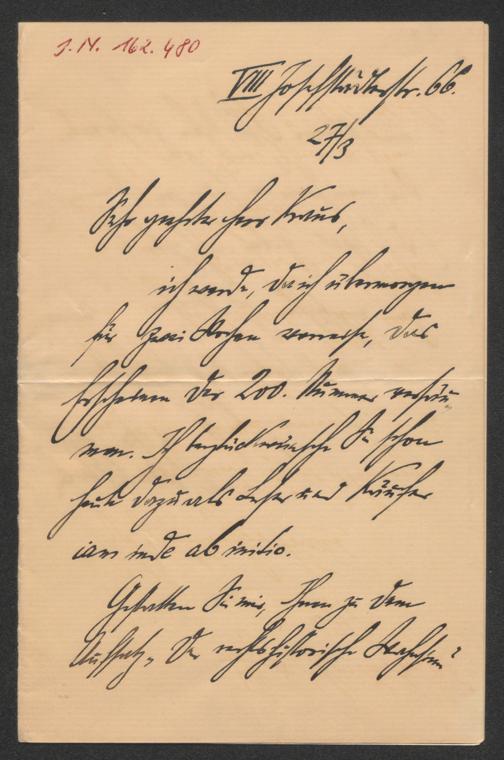 J.N. 162.480
VIII Josefstädterstr. 66.
27/3
Sehr geehrter Herr Kraus,
ich werde, da ich übermorgen
für zwei Wochen verreise, das
Erscheinen der 200. Nummer versäu
men. Ich beglückwünsche Sie schon
heute dazu als Leser und Käufer
iam inde ab initio.
Gestatten Sie mir, Ihnen zu dem
Aufsatz „Der rechtshistorische Wahnsinn"